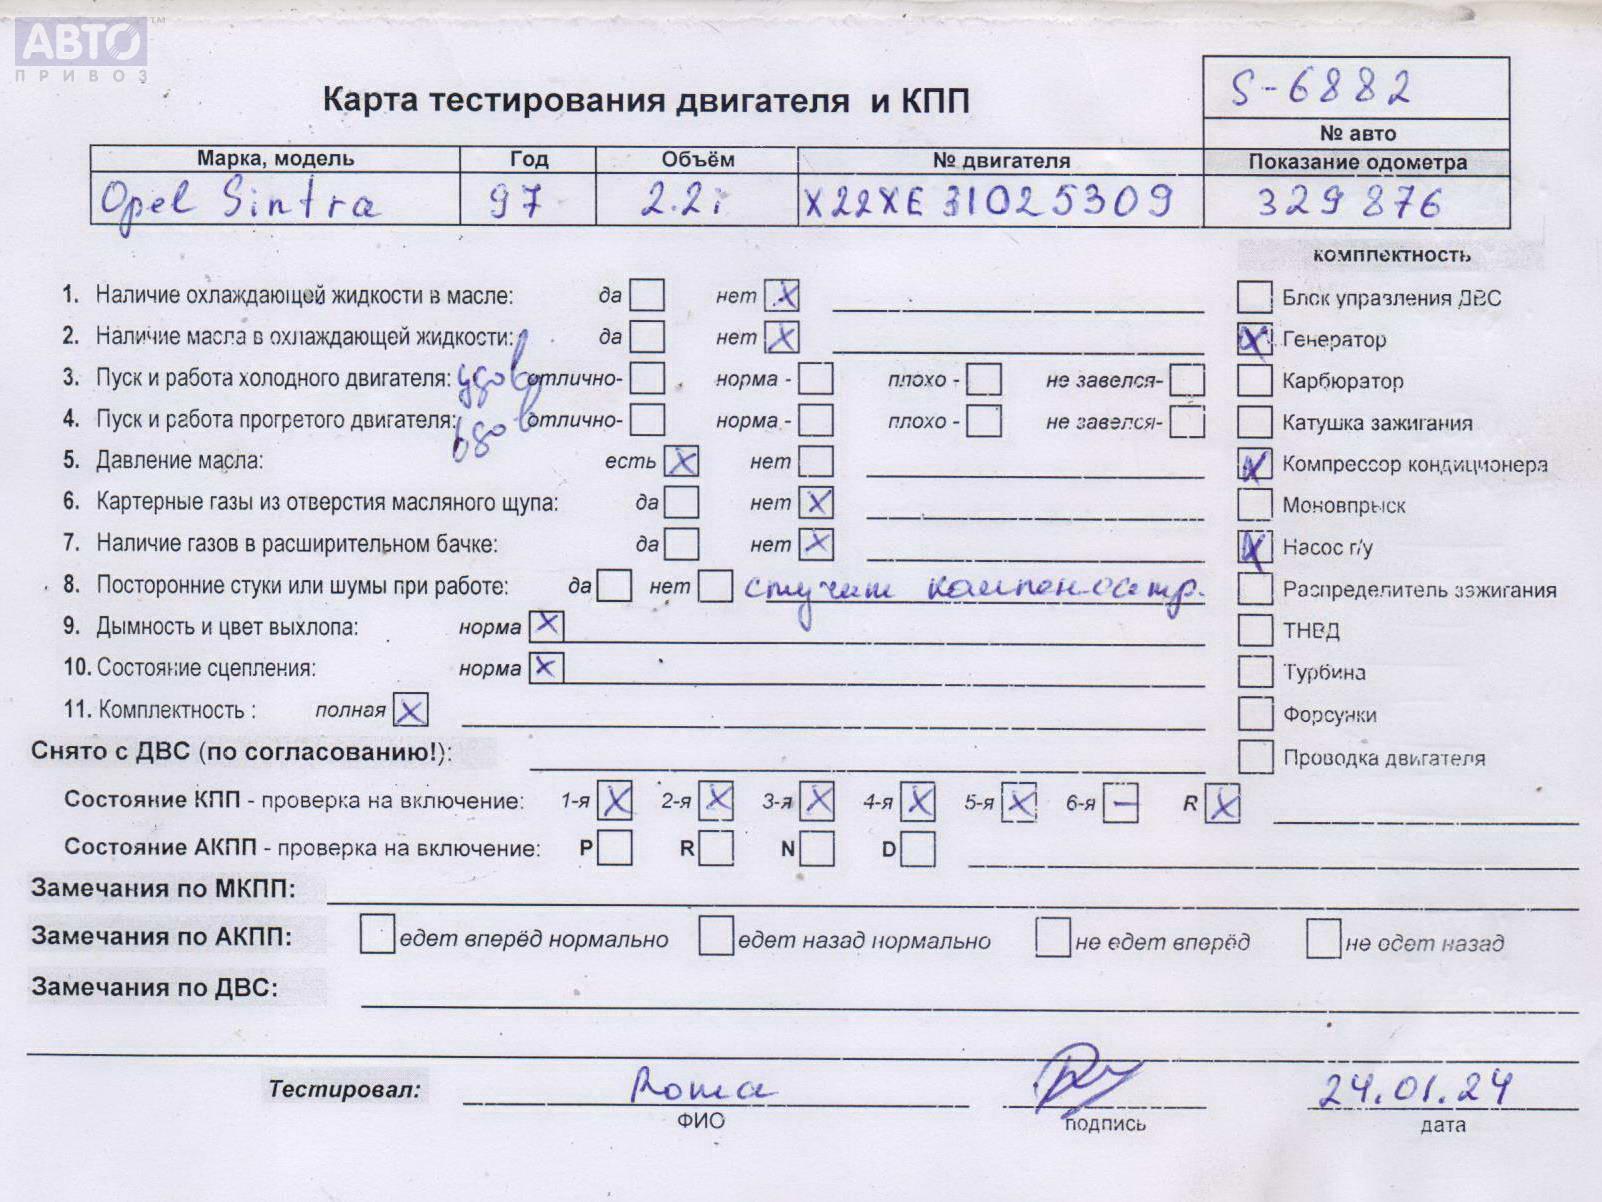 АВТО
ПРИВОЗ
S-6882
Карта тестирования двигателя и КПП
№ авто
Марка, модель Год Объём № двигателя Показание одометра
Opel Sintra 97 2.2i X22XE 31025309 329876
комплектность
1. Наличие охлаждающей жидкости в масле: да нет X
Блок управления ДВС
2. Наличие масла в охлаждающей жидкости: да нет X
X Генератор
3. Пуск и работа холодного двигателя: удов отлично- норма - плохо - не завелся-
Карбюратор
4. Пуск и работа прогретого двигателя: удов отлично- норма - плохо - не завелся-
Катушка зажигания
5. Давление масла: есть X нет
X Компрессор кондиционера
6. Картерные газы из отверстия масляного щупа: да нет X
Моновпрыск
7. Наличие газов в расширительном бачке: да нет X
X Насос г/у
8. Посторонние стуки или шумы при работе: да нет стучат компенсатр.
Распределитель зажигания
9. Дымность и цвет выхлопа: норма X
ТНВД
10. Состояние сцепления: норма X
Турбина
11. Комплектность : полная X
Форсунки
Снято с ДВС (по согласованию!):
Проводка двигателя
Состояние КПП - проверка на включение: 1-я X 2-я X 3-я X 4-я X 5-я X 6-я – R X
Состояние АКПП - проверка на включение: P R N D
Замечания по МКПП:
Замечания по АКПП: едет вперёд нормально едет назад нормально не едет вперёд не едет назад
Замечания по ДВС:
Тестировал: Рома 24.01.24
ФИО подпись дата